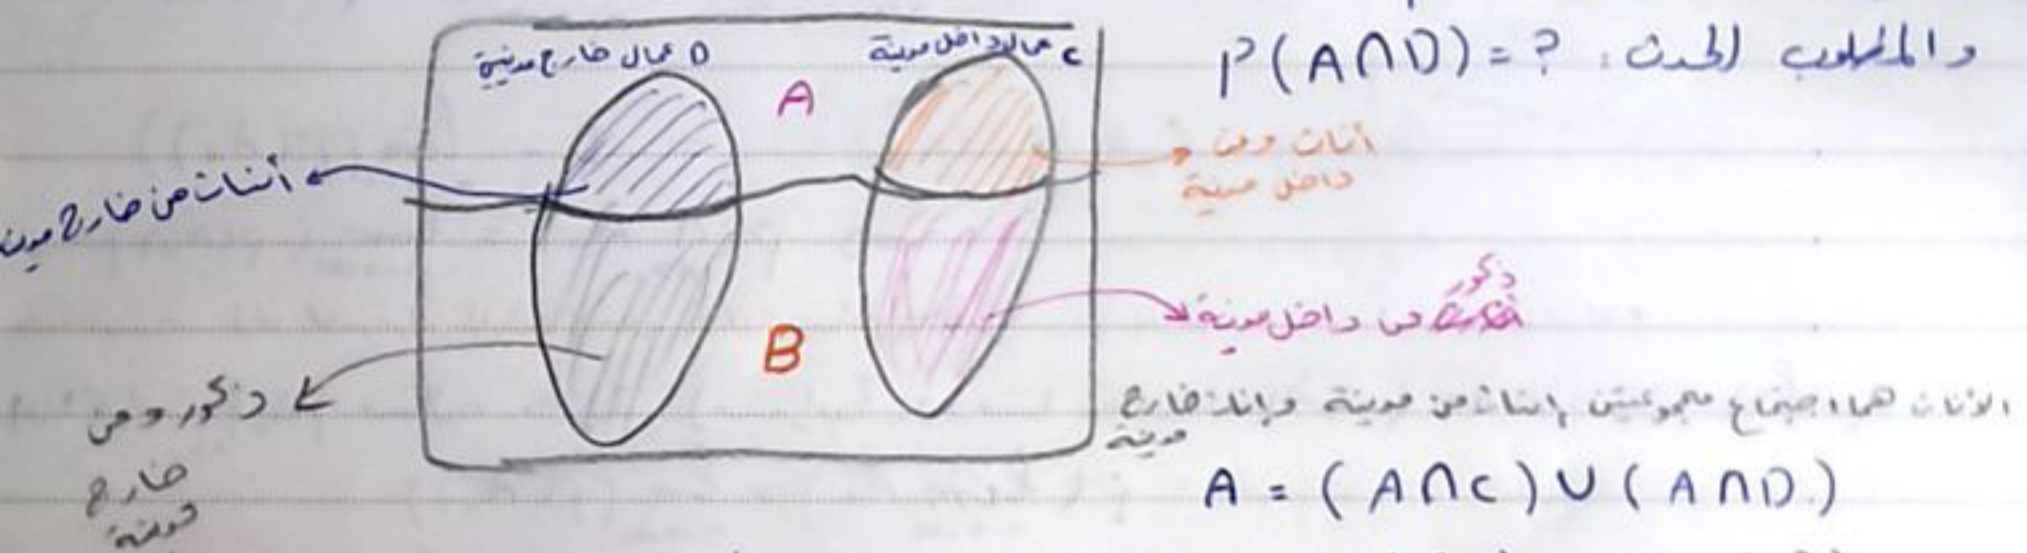 والمطلوب الحدث : P(A∩D) = ?
D عمال خارج مدينة
C عمال داخل مدينة
A
أناث ومن
داخل مدينة
أناث من خارج مدينة
ذكور
من داخل مدينة
B
ذكور ومن
خارج
مدينة
الأناث هما اجتماع مجموعتين إناث من مدينة وإناث خارج
مدينة
A = (A∩C) ∪ (A∩D)